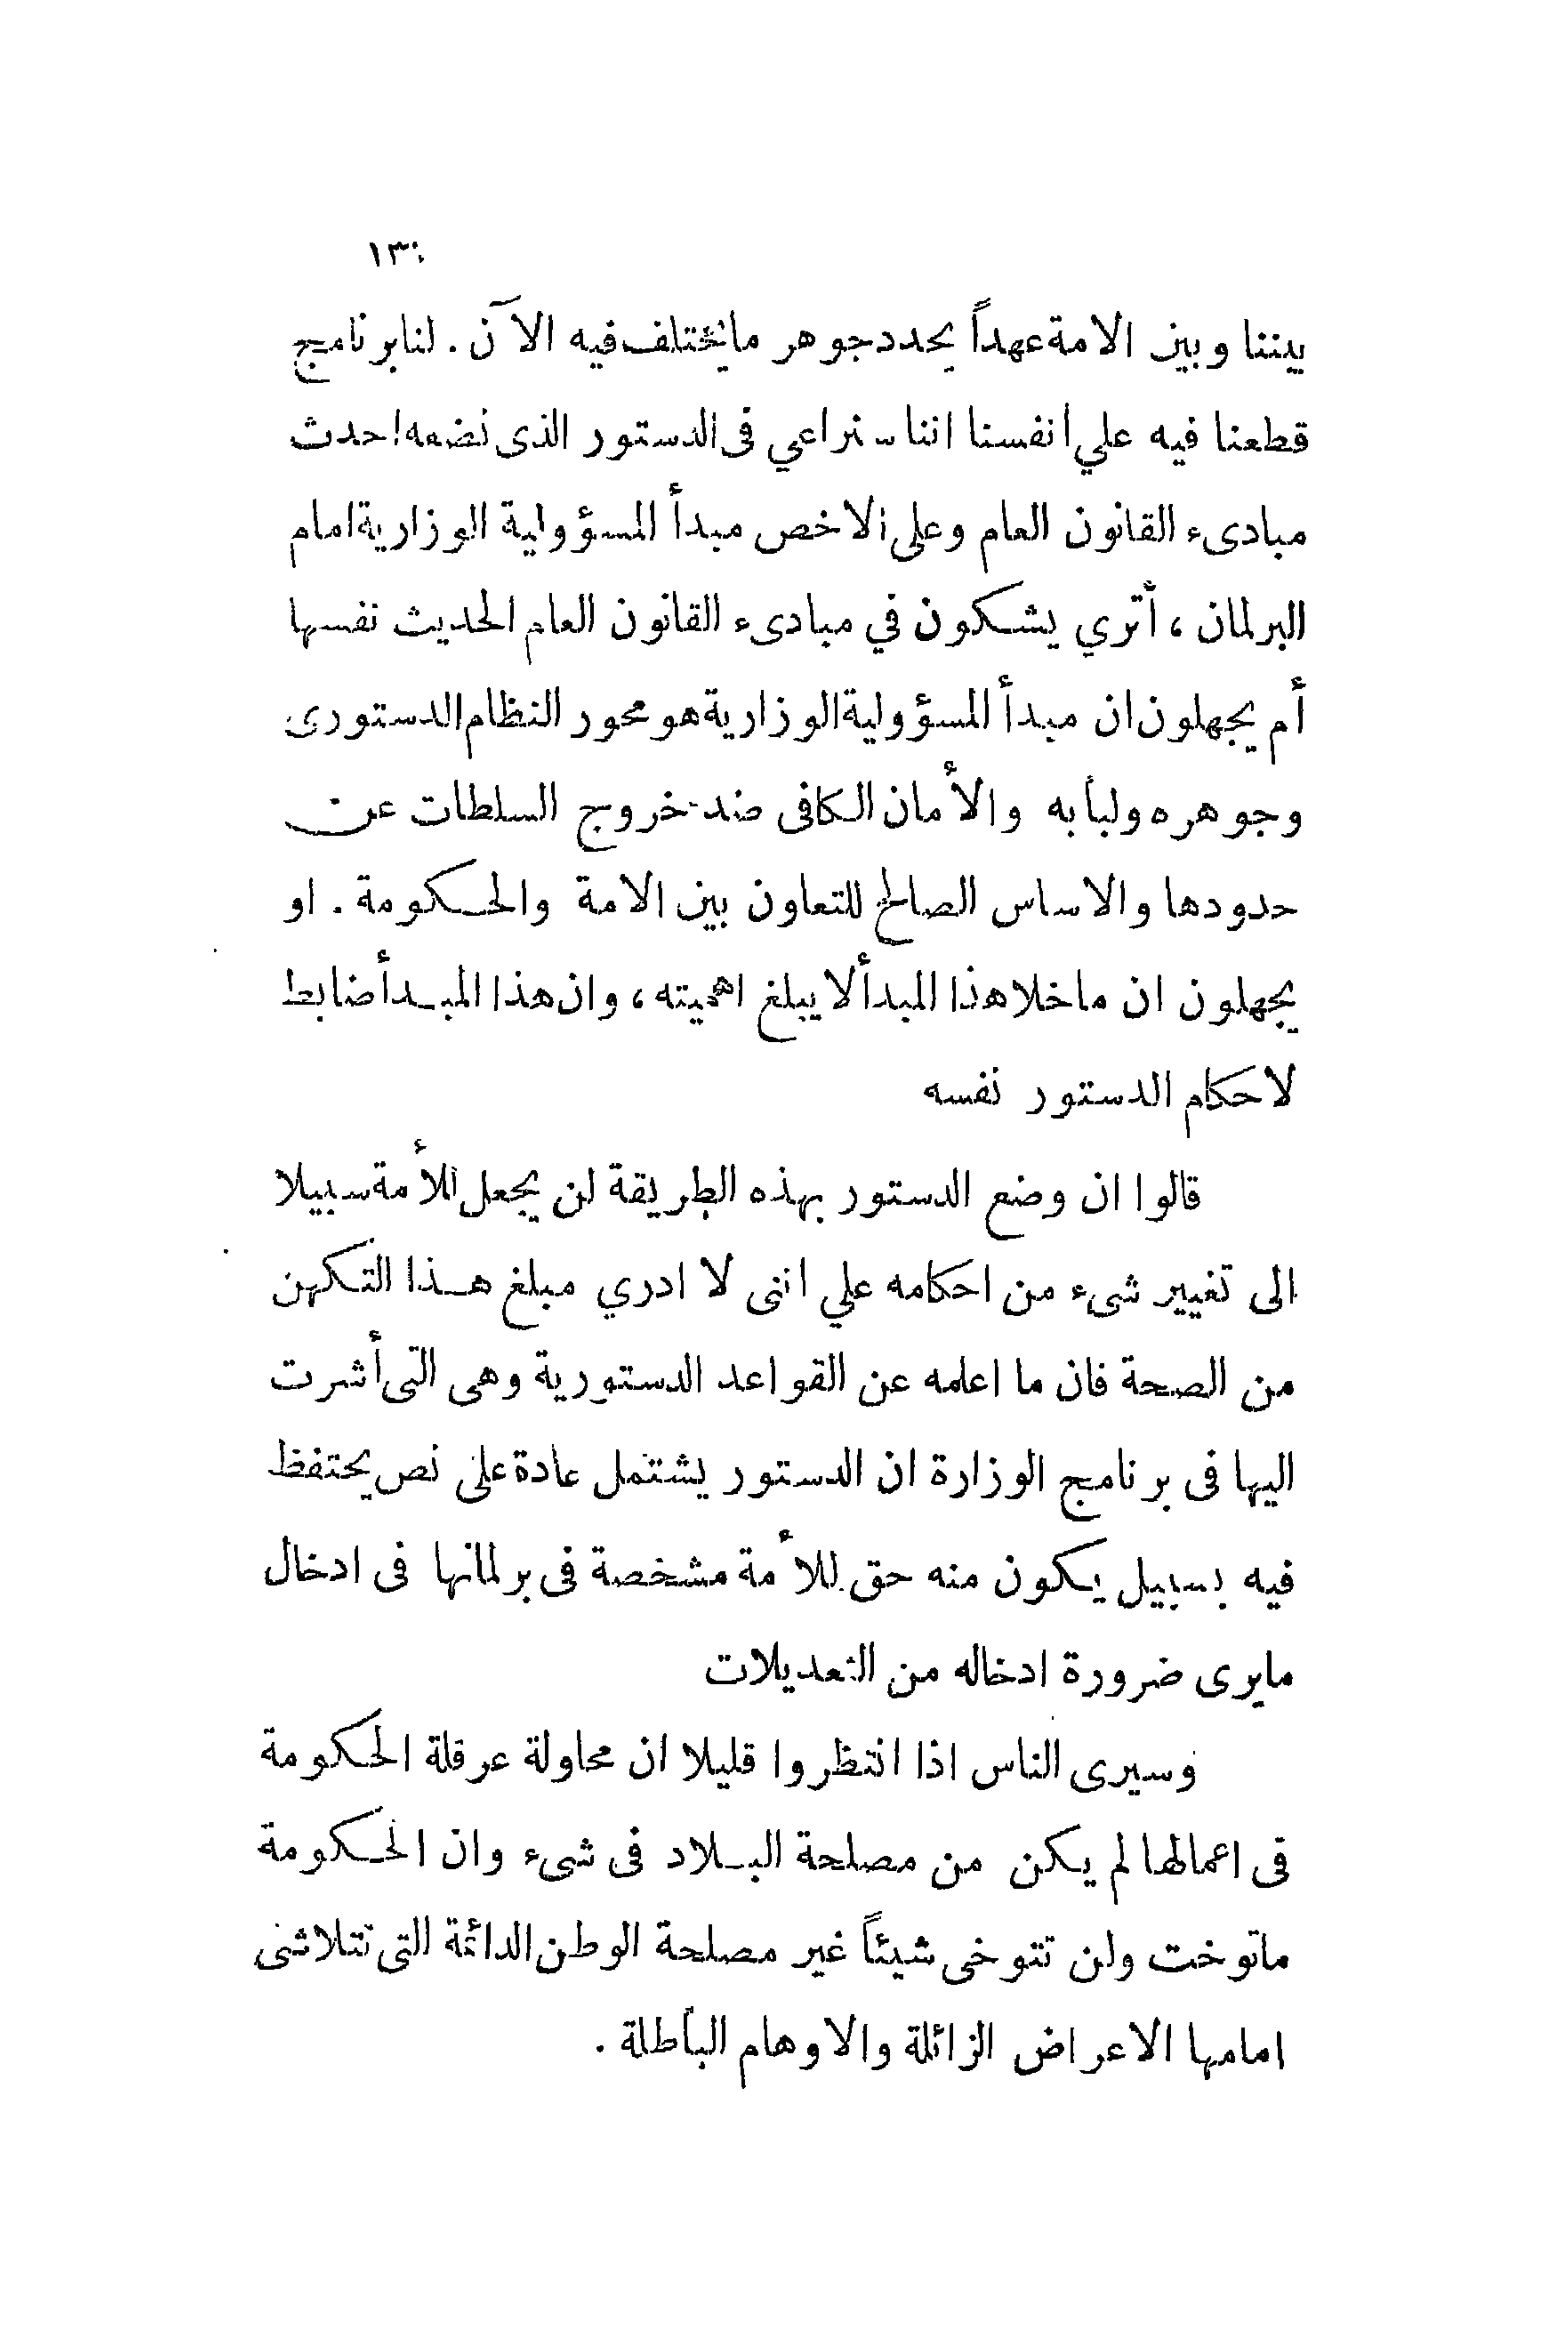 ١٣٠
بيننا وبين الامة عهداً يحدد جوهر ما يختلف فيه الآن . لنا برنامج
قطعنا فيه علي انفسنا اننا سنراعي فى الدستور الذى نضعه احدث
مبادىء القانون العام وعلى الاخص مبدأ المسؤولية الوزارية امام
البرلمان ، أترى يشكون في مبادىء القانون العام الحديث نفسها
أم يجهلون ان مبدأ المسؤولية الوزارية هو محور النظام الدستورى
وجوهره ولبابه والأمان الكافى ضد خروج السلطات عن
حدودها والاساس الصالح للتعاون بين الامة والحكومة . او
يجهلون ان ما خلا هذا المبدأ لا يبلغ اهميته ، وان هذا المبدأ ضابط
لاحكام الدستور نفسه
قالوا ان وضع الدستور بهذه الطريقة لن يجعل للأمة سبيلا
الى تغيير شىء من احكامه علي اننى لا ادري مبلغ هذا التكهن
من الصحة فان ما اعلمه عن القواعد الدستورية وهى التى أشرت
اليها فى برنامج الوزارة ان الدستور يشتمل عادة على نص يحتفظ
فيه بسبيل يكون منه حق للأمة مشخصة فى برلمانها فى ادخال
ما يرى ضرورة ادخاله من التعديلات
وسيرى الناس اذا انتظروا قليلا ان محاولة عرقلة الحكومة
فى اعمالها لم يكن من مصلحة البلاد فى شىء وان الحكومة
ما توخت ولن تتوخى شيئاً غير مصلحة الوطن الدائمة التى تتلاشى
امامها الاعراض الزائلة والاوهام الباطلة .